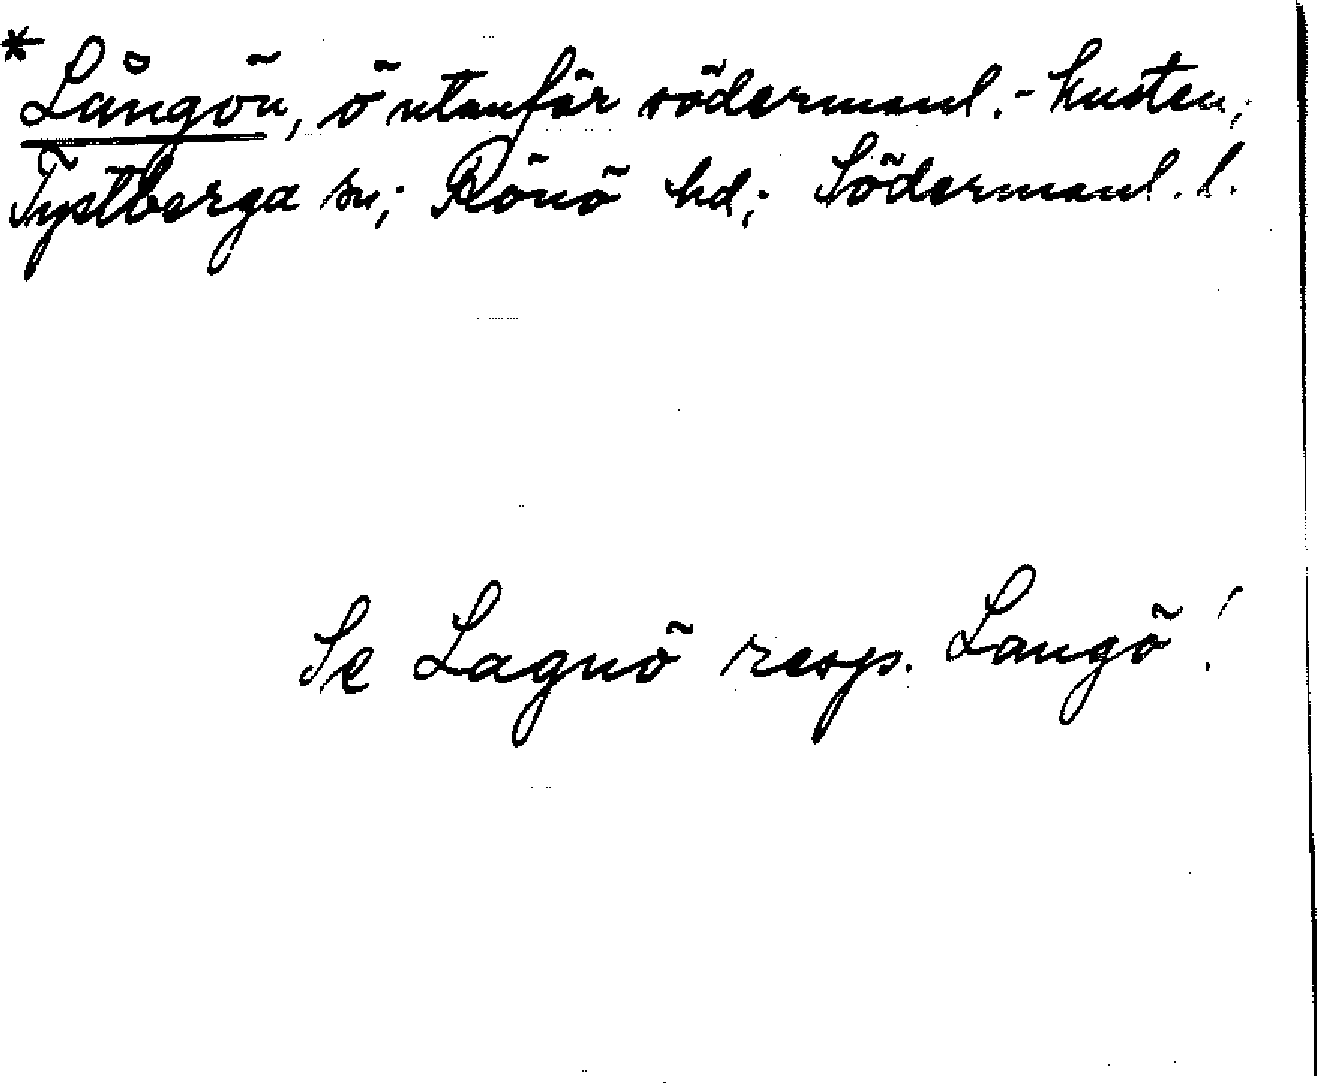 * Långön, ö utanför södermanl.-kusten;
Tystberga sn; Rönö hd; Södermanl. l.
Se Lagnö resp. Langö!